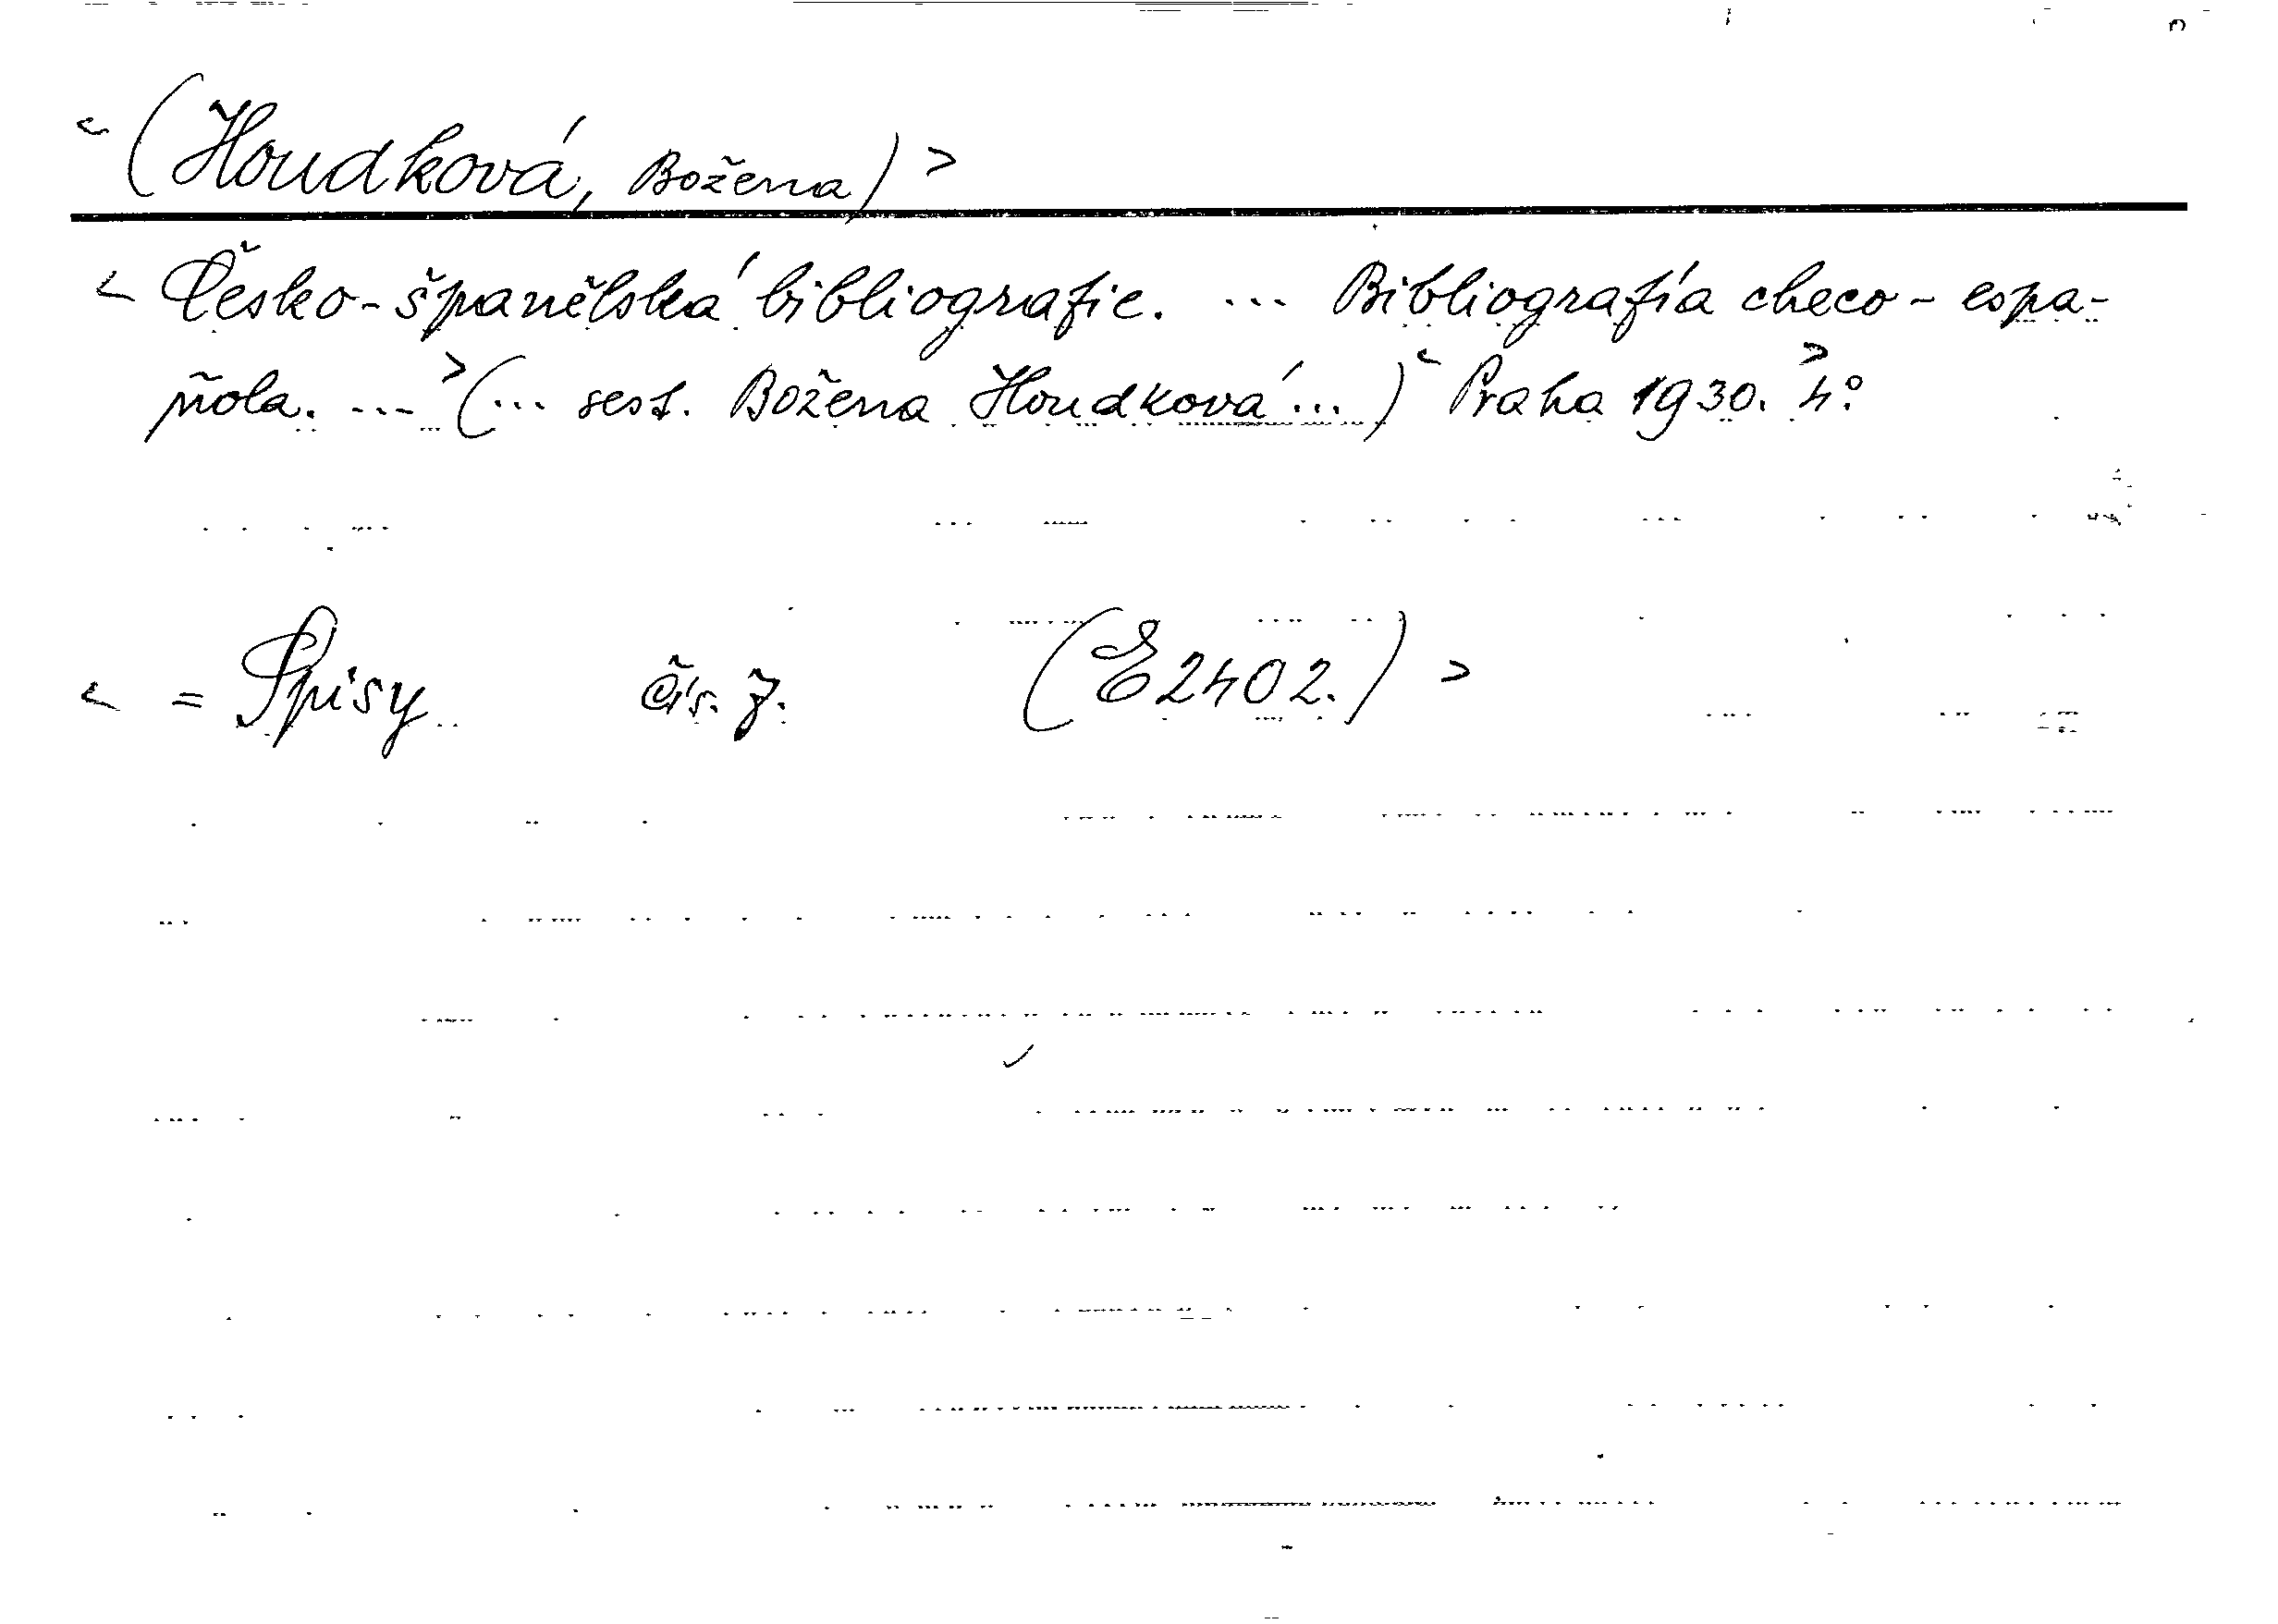 < (Houdková, Božena) >
< Česko-španělská bibliografie. ... Bibliografía checo-espa-
ñola. ... > (... sest. Božena Houdková ...) < Praha 1930. > 4°.
< = Spisy čís. 7. (E2402.) >